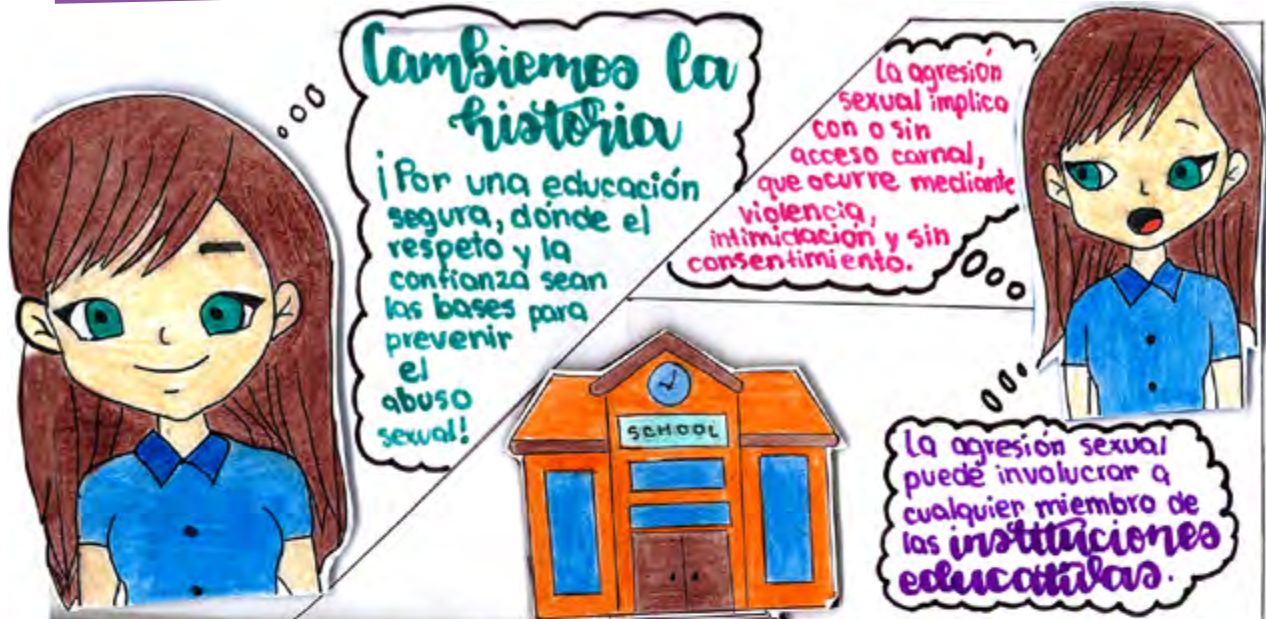 Cambiemos la
historia
¡Por una educación
segura, dónde el
respeto y la
confianza sean
las bases para
prevenir
el
abuso
sexual!
La agresión
sexual implica
con o sin
acceso carnal,
que ocurre mediante
violencia,
intimidación y sin
consentimiento.
SCHOOL
La agresión sexual
puede involucrar a
cualquier miembro de
las instituciones
educativas.